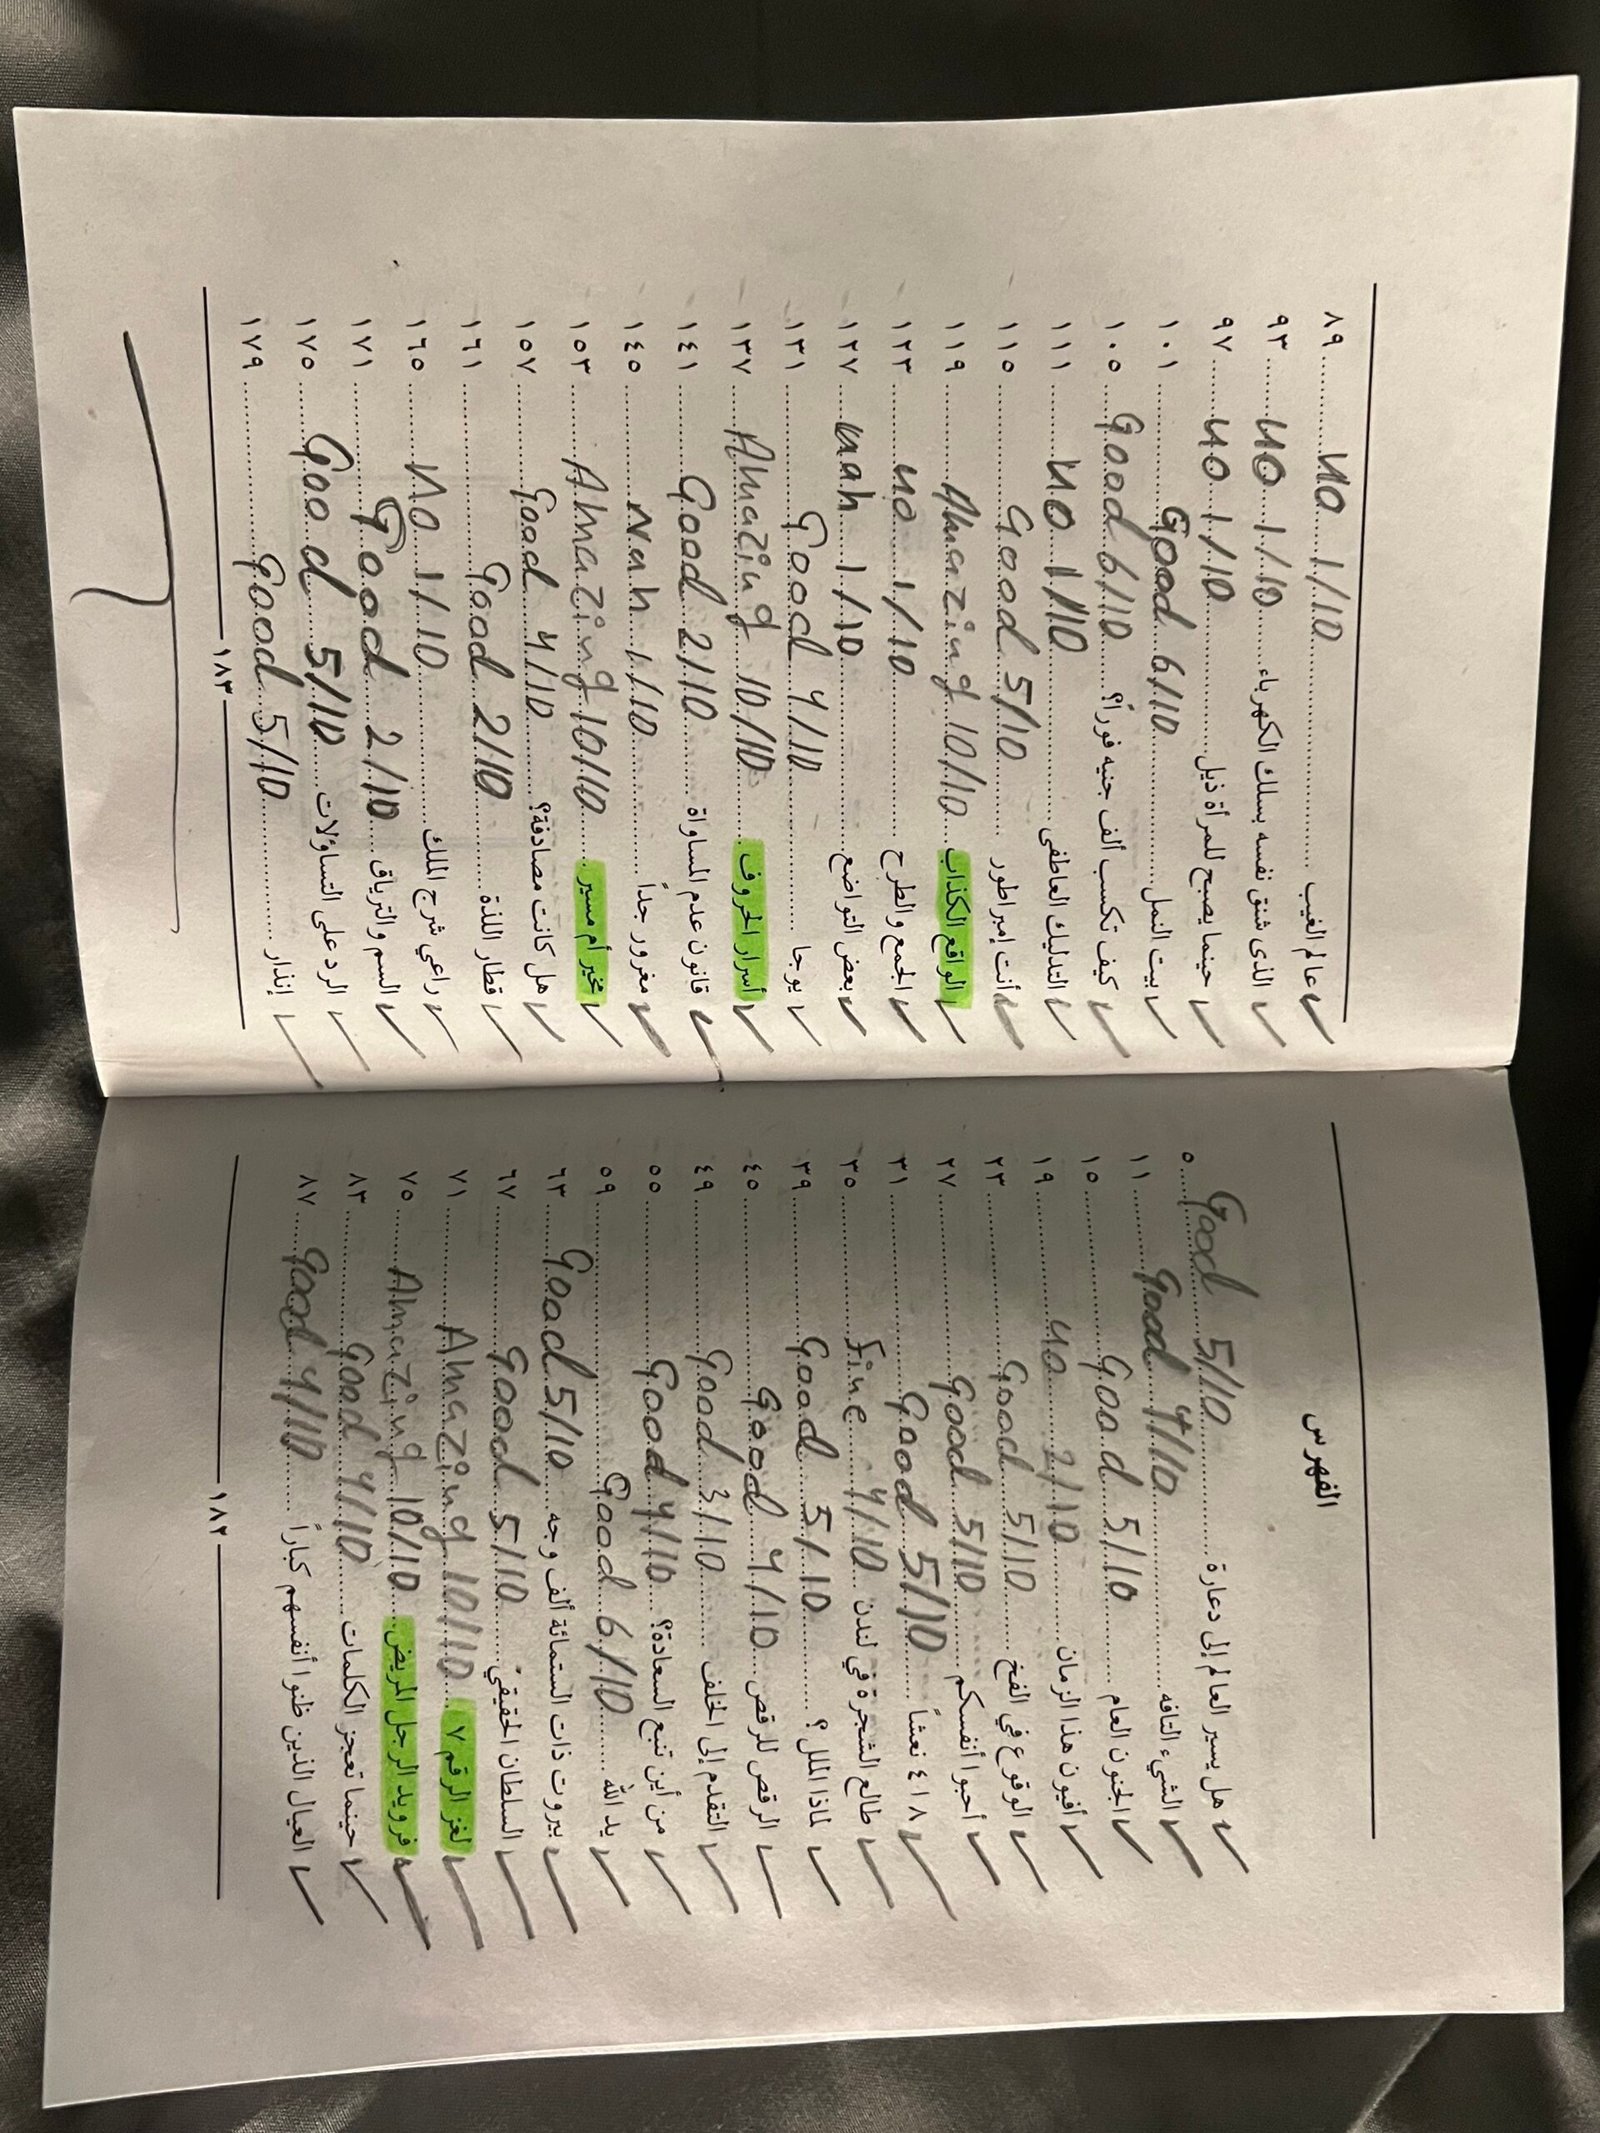 الفهرس
هل يسير العالم إلى دعارة ........ Good 5/10 ........ ٥
الشيء التافه ........ Good 4/10 ........ ١١
الجنون العام ........ Good 5/10 ........ ١٥
أفيون هذا الزمان ........ no 2/10 ........ ١٩
الوقوع في الفخ ........ Good 5/10 ........ ٢٣
أحبوا أنفسكم ........ Good 5/10 ........ ٢٧
٤١٨ نعشاً ........ Good 5/10 ........ ٣١
طالع الشجرة في لندن ........ fine 4/10 ........ ٣٥
لماذا الملل؟ ........ Good 5/10 ........ ٣٩
الرقص للرقص ........ Good 4/10 ........ ٤٥
التقدم إلى الخلف ........ Good 3/10 ........ ٤٩
من أين تنبع السعادة؟ ........ Good 4/10 ........ ٥٥
يد الله ........ Good 6/10 ........ ٥٩
بيروت ذات الستمائة ألف وجه ........ Good 5/10 ........ ٦٣
السلطان الحقيقي ........ Good 5/10 ........ ٦٧
لغز الرقم ٧ ........ Amazing 10/10 ........ ٧١
فرويد الرجل المريض ........ Amazing 10/10 ........ ٧٥
حينما تعجز الكلمات ........ Good 4/10 ........ ٨٣
العيال الذين ظنوا أنفسهم كباراً ........ Good 4/10 ........ ٨٧
١٨٢
عالم الغيب ........ no 1/10 ........ ٨٩
الذى شنق نفسه بسلك الكهرباء ........ no 1/10 ........ ٩٣
حينما يصبح للمرأة ذيل ........ no 1/10 ........ ٩٧
بيت النمل ........ Good 6/10 ........ ١٠١
كيف تكسب ألف جنيه فوراً؟ ........ Good 6/10 ........ ١٠٥
التدليك العاطفى ........ no 1/10 ........ ١١١
أنت إمبراطور ........ Good 5/10 ........ ١١٥
الواقع الكذاب ........ Amazing 10/10 ........ ١١٩
الجمع والطرح ........ no 1/10 ........ ١٢٣
بعض التواضع ........ nah 1/10 ........ ١٢٧
يوجا ........ Good 4/10 ........ ١٣١
أسرار الحروف ........ Amazing 10/10 ........ ١٣٧
قانون عدم المساواة ........ Good 2/10 ........ ١٤١
مغرور جداً ........ Nah 1/10 ........ ١٤٥
مخير أم مسير ........ Amazing 10/10 ........ ١٥٣
هل كانت مصادفة؟ ........ Good 4/10 ........ ١٥٧
قطار اللذة ........ Good 2/10 ........ ١٦١
راعي شرج الملك ........ No 1/10 ........ ١٦٥
السم والترياق ........ Good 2/10 ........ ١٧١
الرد على التساؤلات ........ Good 5/10 ........ ١٧٥
إنذار ........ Good 5/10 ........ ١٧٩
١٨٣